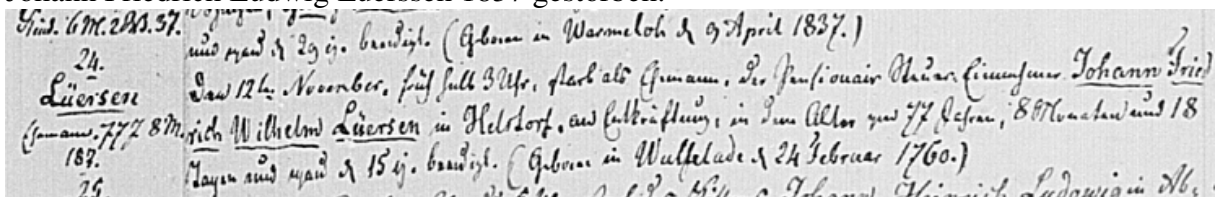 Johann Friedrich Ludwig Lüerssen 1837 gestorben.
Kind. 6 M.
und ward d 29 ej. beerdigt. (Geboren in Warmeloh d 9 April 1837.)
24.
Lüersen
Ehemann. 77 J 8 M.
18 T.
Den 12ten November, früh halb 3 Uhr, starb als Ehemann, der Pensionair Steuer-Einnehmer Johann Fried
rich Wilhelm Lüersen in Helstorf, an Entkräftung, in dem Alter von 77 Jahren, 8 Monaten und 18
Tagen und ward d 15 ej. beerdigt. (Geboren in Wulfelade d 24 Februar 1760.)
25.
Johann Heinrich Ludewig in Ab=